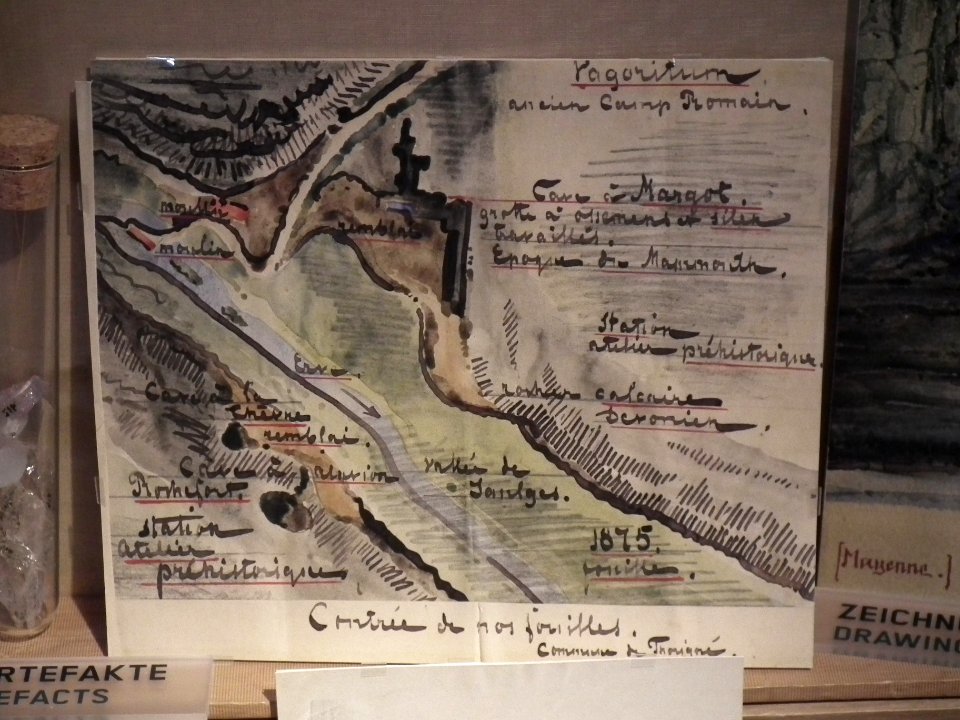 Vagoritum
ancien Camp Romain.
Cave à Margot.
grotte à ossements et silex
travaillés.
Epoque du Mammouth.
moulin
moulin
remblai
Station
atelier préhistorique
rocher calcaire
Devonien.
Erve.
Cave à la
Chèvre
remblai.
Cave à
Rochefort.
alluvion
vallée de
Saulges.
Station
Atelier
préhistorique
1875.
fouilles.
Contrée de nos fouilles.
Commune de Thorigné.
[Mayenne.]
RTEFAKTE
EFACTS
ZEICHN
DRAWING